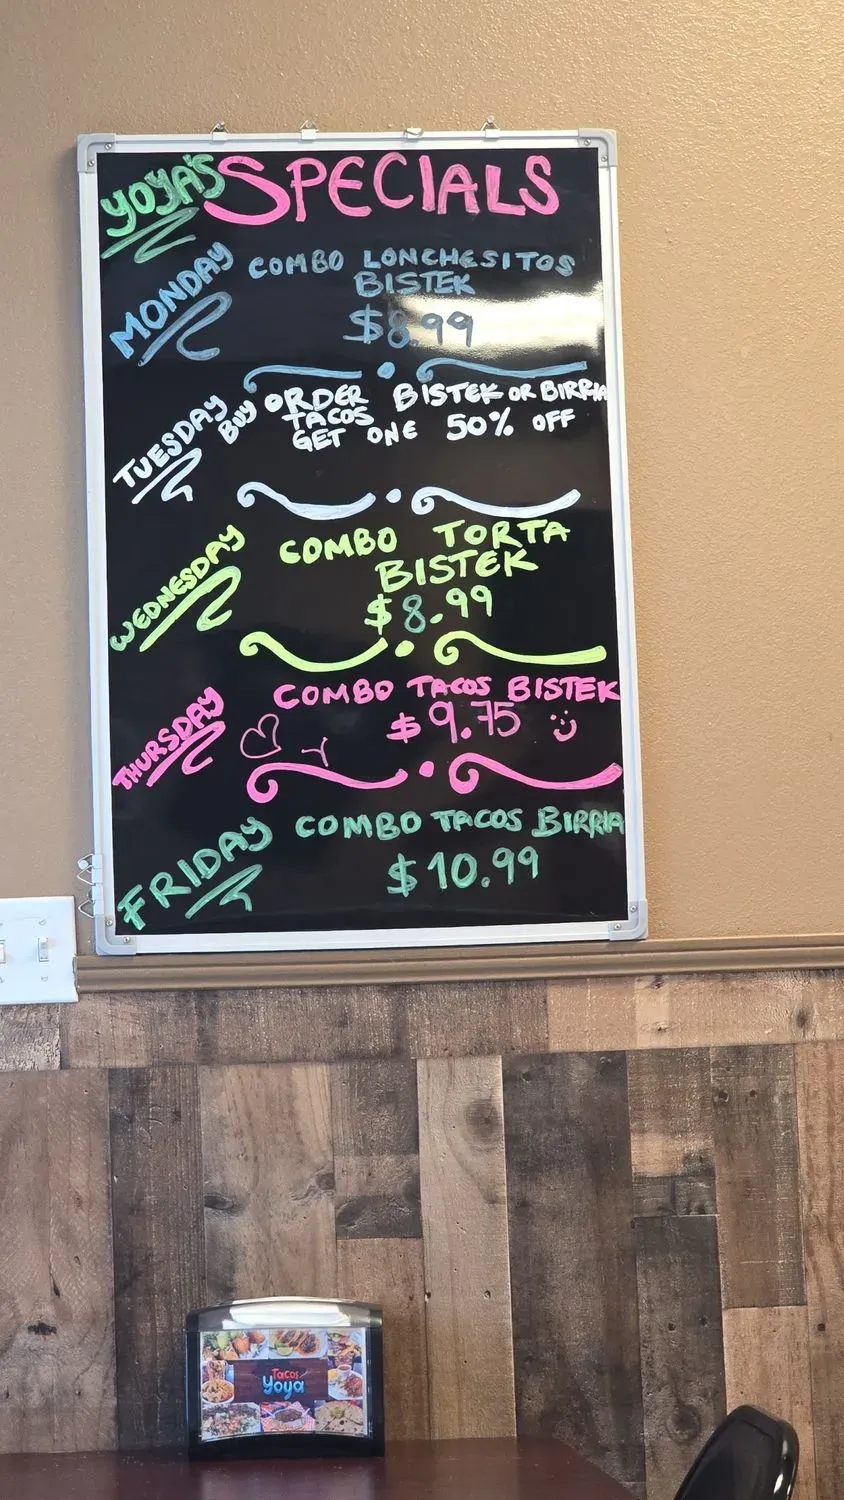 YOYA'S SPECIALS
MONDAY
COMBO LONCHESITOS
BISTEK
$8.99
TUESDAY
BUY ORDER BISTEK OR BIRRIA
TACOS
GET ONE 50% OFF
WEDNESDAY
COMBO TORTA
BISTEK
$8.99
THURSDAY
COMBO TACOS BISTEK
$9.75
FRIDAY
COMBO TACOS BIRRIA
$10.99
Tacos
yoya